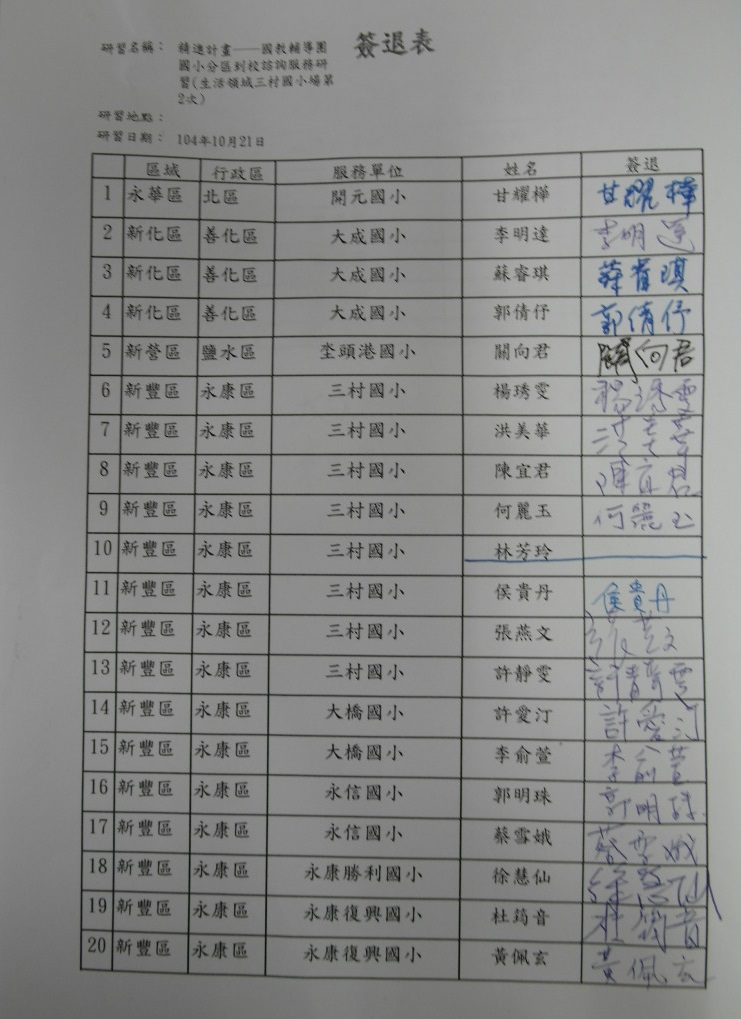 簽退表
研習名稱： 精進計畫——國教輔導團
國小分區到校諮詢服務研
習(生活領域三村國小場第
2次)
研習地點：
研習日期： 104年10月21日
區域 行政區 服務單位 姓名 簽退
1 永華區 北區 開元國小 甘耀樺 甘耀樺
2 新化區 善化區 大成國小 李明達 李明達
3 新化區 善化區 大成國小 蘇睿琪 蘇睿琪
4 新化區 善化區 大成國小 郭倩伃 郭倩伃
5 新營區 鹽水區 坔頭港國小 關向君 關向君
6 新豐區 永康區 三村國小 楊琇雯 楊琇雯
7 新豐區 永康區 三村國小 洪美華 洪美華
8 新豐區 永康區 三村國小 陳宜君 陳宜君
9 新豐區 永康區 三村國小 何麗玉 何麗玉
10 新豐區 永康區 三村國小 林芳玲
11 新豐區 永康區 三村國小 侯貴丹 侯貴丹
12 新豐區 永康區 三村國小 張燕文 張燕文
13 新豐區 永康區 三村國小 許靜雯 許靜雯
14 新豐區 永康區 大橋國小 許愛汀 許愛汀
15 新豐區 永康區 大橋國小 李俞萱 李俞萱
16 新豐區 永康區 永信國小 郭明珠 郭明珠
17 新豐區 永康區 永信國小 蔡雪娥 蔡雪娥
18 新豐區 永康區 永康勝利國小 徐慧仙 徐慧仙
19 新豐區 永康區 永康復興國小 杜筠音 杜筠音
20 新豐區 永康區 永康復興國小 黃佩玄 黃佩玄